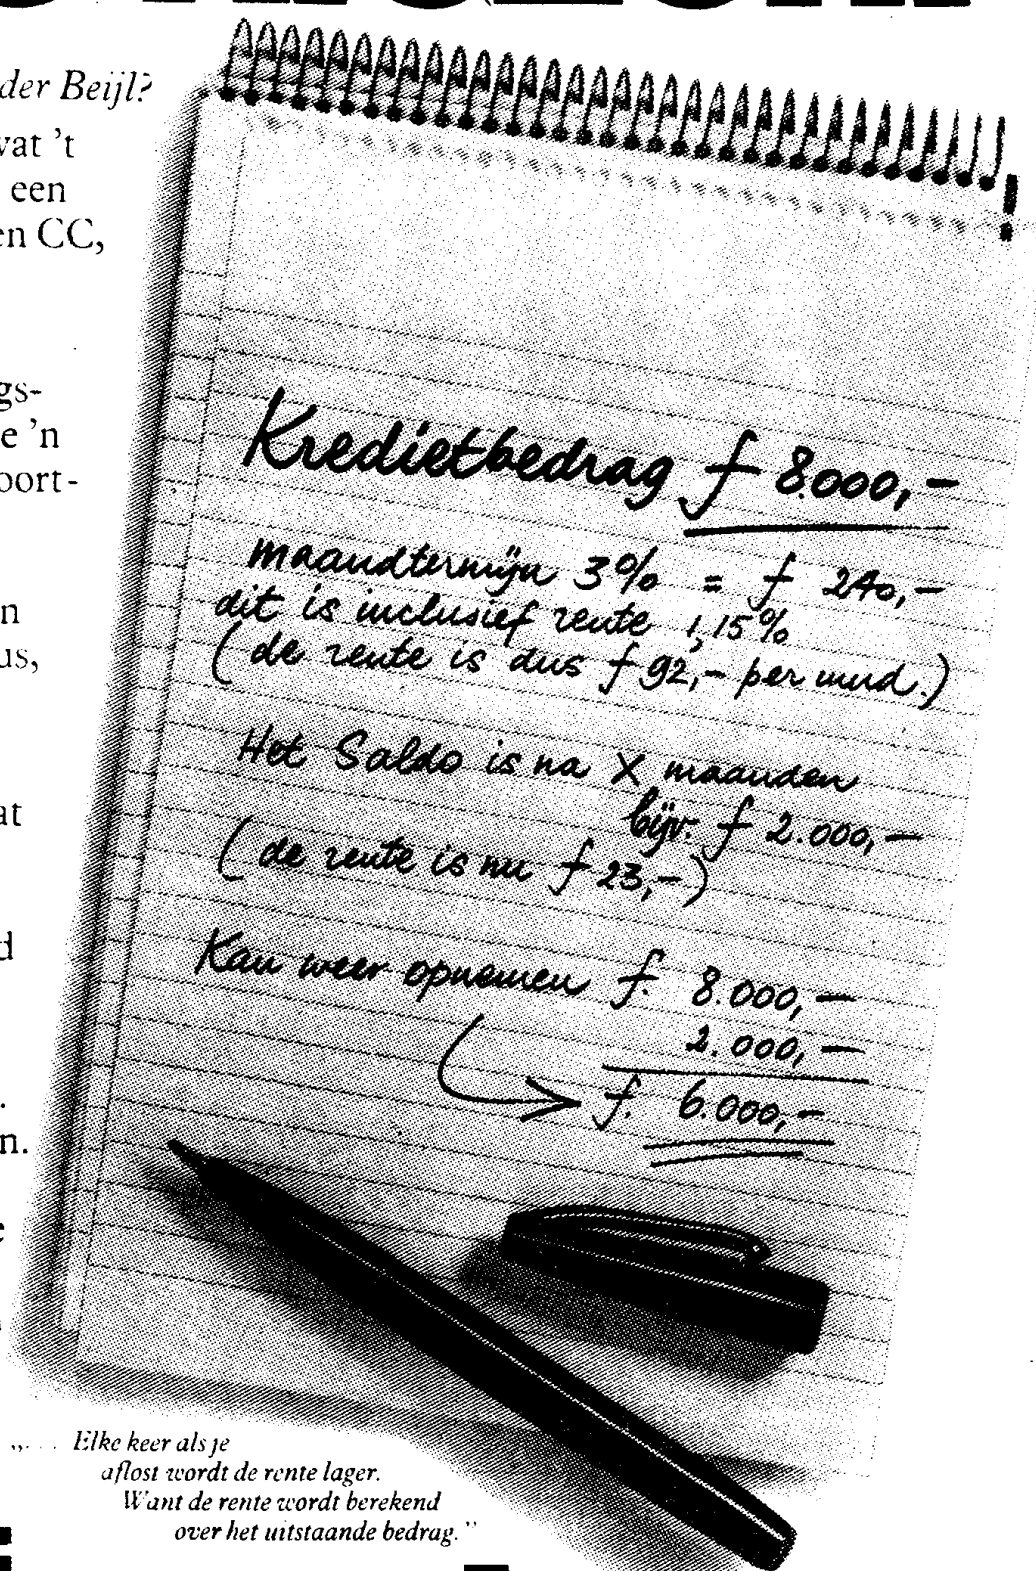 der Beijl?
wat 't
een
en CC,
gs-
e 'n
oort-
n
us,
at
d
n.
e
Kredietbedrag f 8.000,-
maandtermijn 3% = f 240,-
dit is inclusief rente 1,15%
(de rente is dus f 92,- per mnd.)
Het Saldo is na X maanden
bijv. f 2.000,-
(de rente is nu f 23,-)
Kan weer opnemen f. 8.000,-
2.000,-
f. 6.000,-
„... Elke keer als je
aflost wordt de rente lager.
Want de rente wordt berekend
over het uitstaande bedrag.”